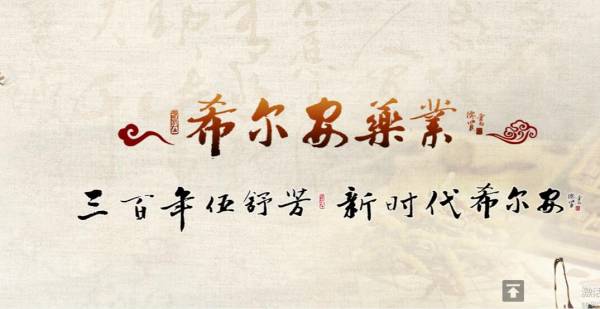 希尔安藥業
三百年伍舒芳 新时代希尔安